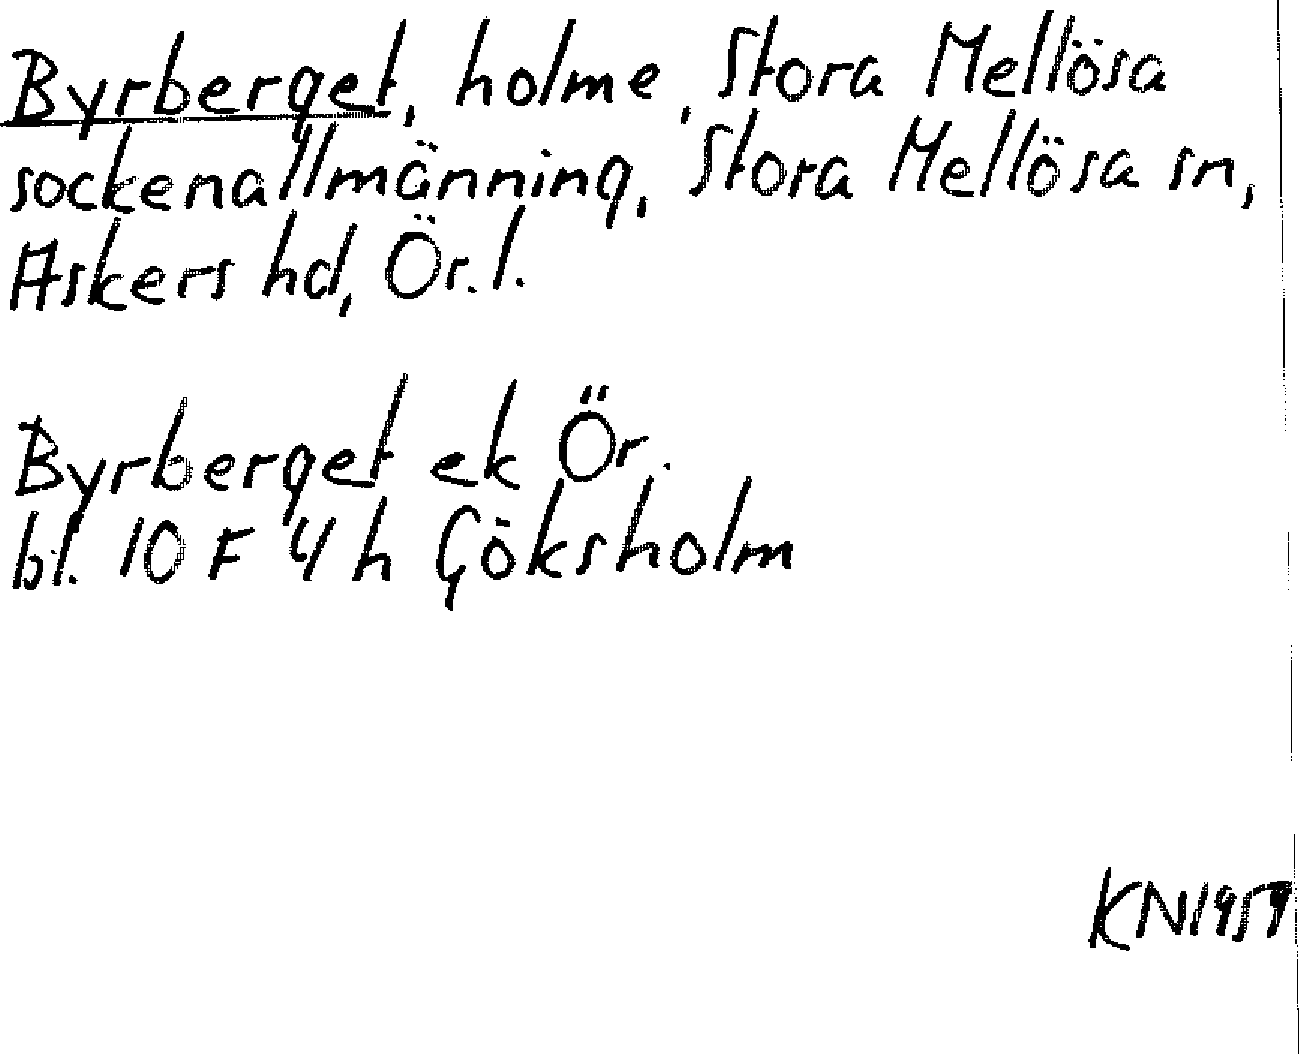 Byrberget, holme, Stora Mellösa
sockenallmänning, Stora Mellösa sn,
Askers hd, Ör.l.
Byrberget ek Ör.
bl. 10 F 4 h Göksholm
KN1959